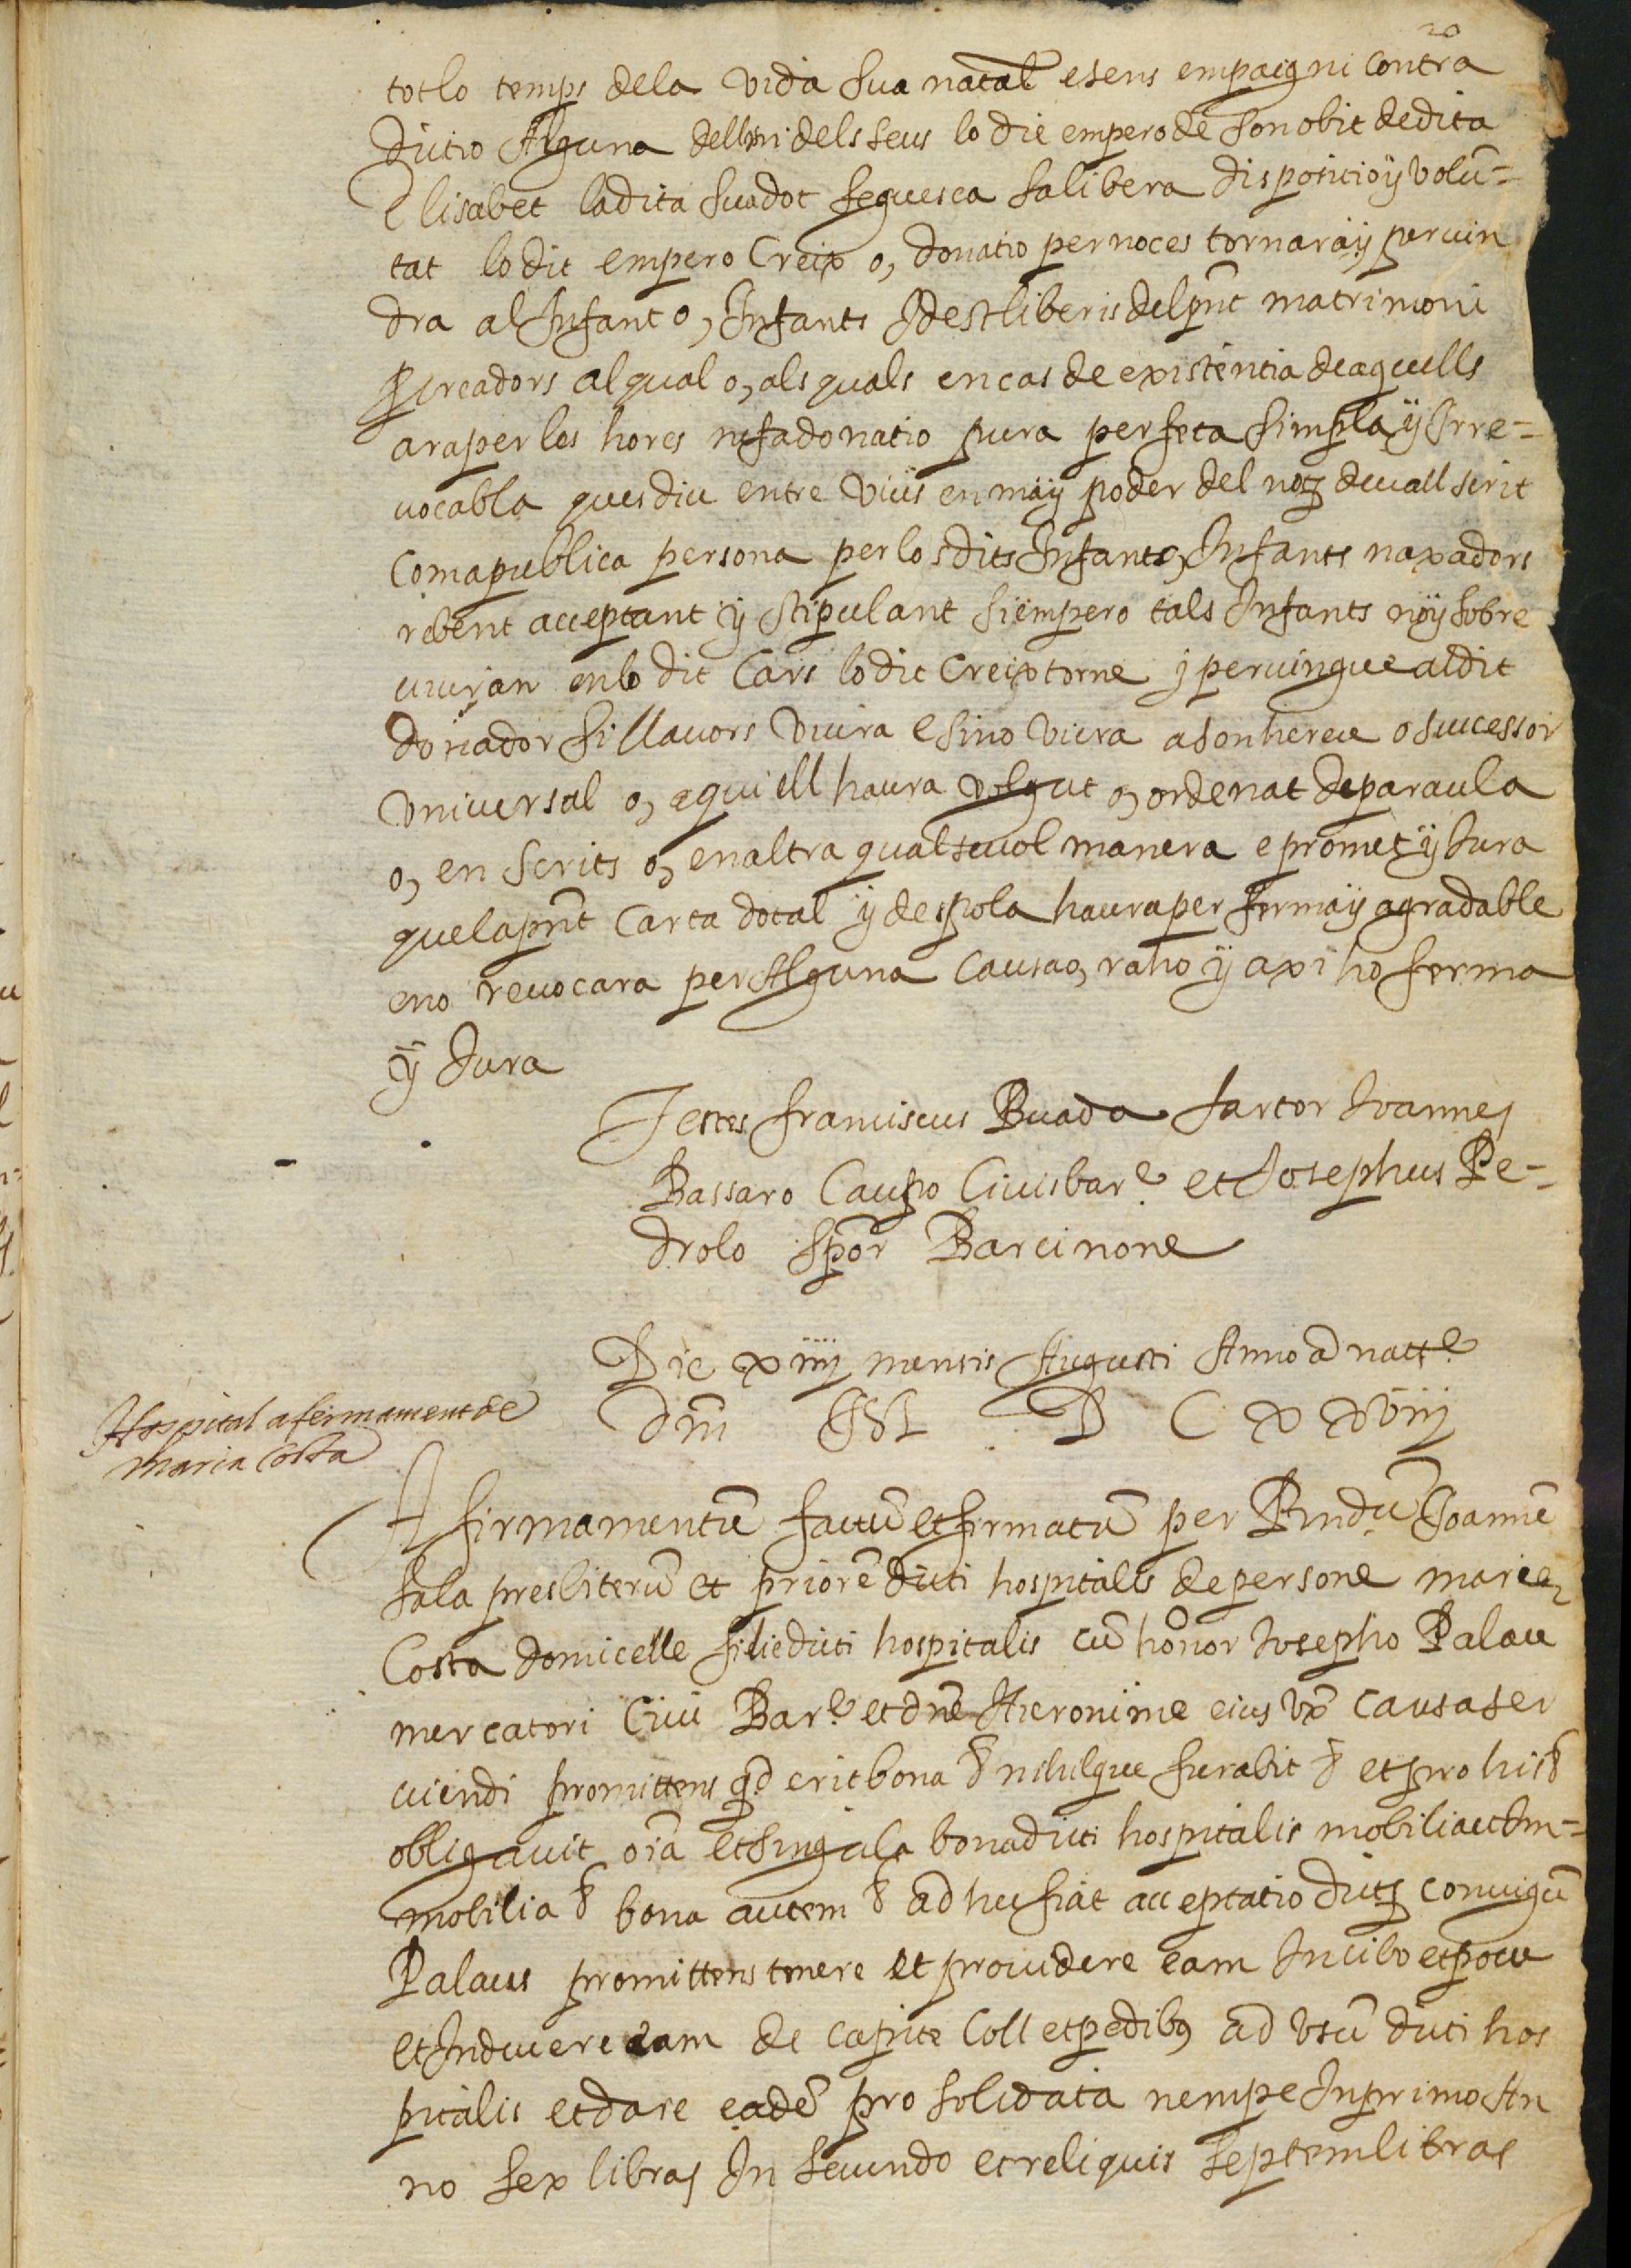 20
tot lo temps dela vida sua natal e sens empaig ni contra
dictio Alguna dell ni dels seus lo die empero de son obit dedita
Elisabet la dita sua dot seguesca sa libera dispositio ÿ volū=
tat lo dit empero Creix o, donatio per noces tornara ÿ peruin
dra al Infant o, Infants Id est liberis del pnt matrimoni
pcreadors al qual o, als quals en cas de existentia de aquells
ara per les hores ne fa donatio pura perfeta simpla ÿ Irre=
uocabla ques diu entre viüs en ma ÿ poder del not deuall scrit
Com a publica persona per los dits Infant o, Infants naxadors
rebent acceptant ÿ stipulant si empero tals Infants noÿ sobre
uiuran en lo dit Cars lo dit Creix torne ÿ peruingue al dit
donador si llauors viura e si no viura a son hereu o successor
vniuersal o, a qui ell haura volgut o, ordenat de paraula
o, en scrits o, en altra qualseuol manera e promet ÿ Jura
que la pnt Carta dotal ÿ de spoli haura per ferma ÿ agradable
e no reuocara per Alguna Causa o, raho ÿ axi ho ferma
ÿ Jura
Testes franciscus Buada sartor Joannes
Bassaro Caupo Ciuis bar.e et Josephus Pe=
drolo spōr Barcinone
Die xiiij mensis Augusti Anno a natt.e
dni M D C x xviij
Hospital afermament de
maria Costa
Afirmamentū factū et firmatū per Rndū Joannē
Sala presbiterū et priorē dicti hospitalis de persone marie
Costa domicelle filie dicti hospitalis cū honor Josepho Palau
mercatori Ciui Bar.e et dne Hieronime eius vx causa ser
uiendi promittens qd erit bona & nihilque furabit & et pro his &
obligauit oia et singula bona dicti hospitalis mobilia et Im=
mobilia & bona autem & ad hec fiat acceptatio dicts coniugū
Palaus promittens tenere et prouidere eam In cibo et potu
et Induere eam de capite Coll et pedibus ad vsū dicti hos
pitalis et dare eadē pro solidata nempe In primo An
no sex libras In secundo et reliquis septem libras